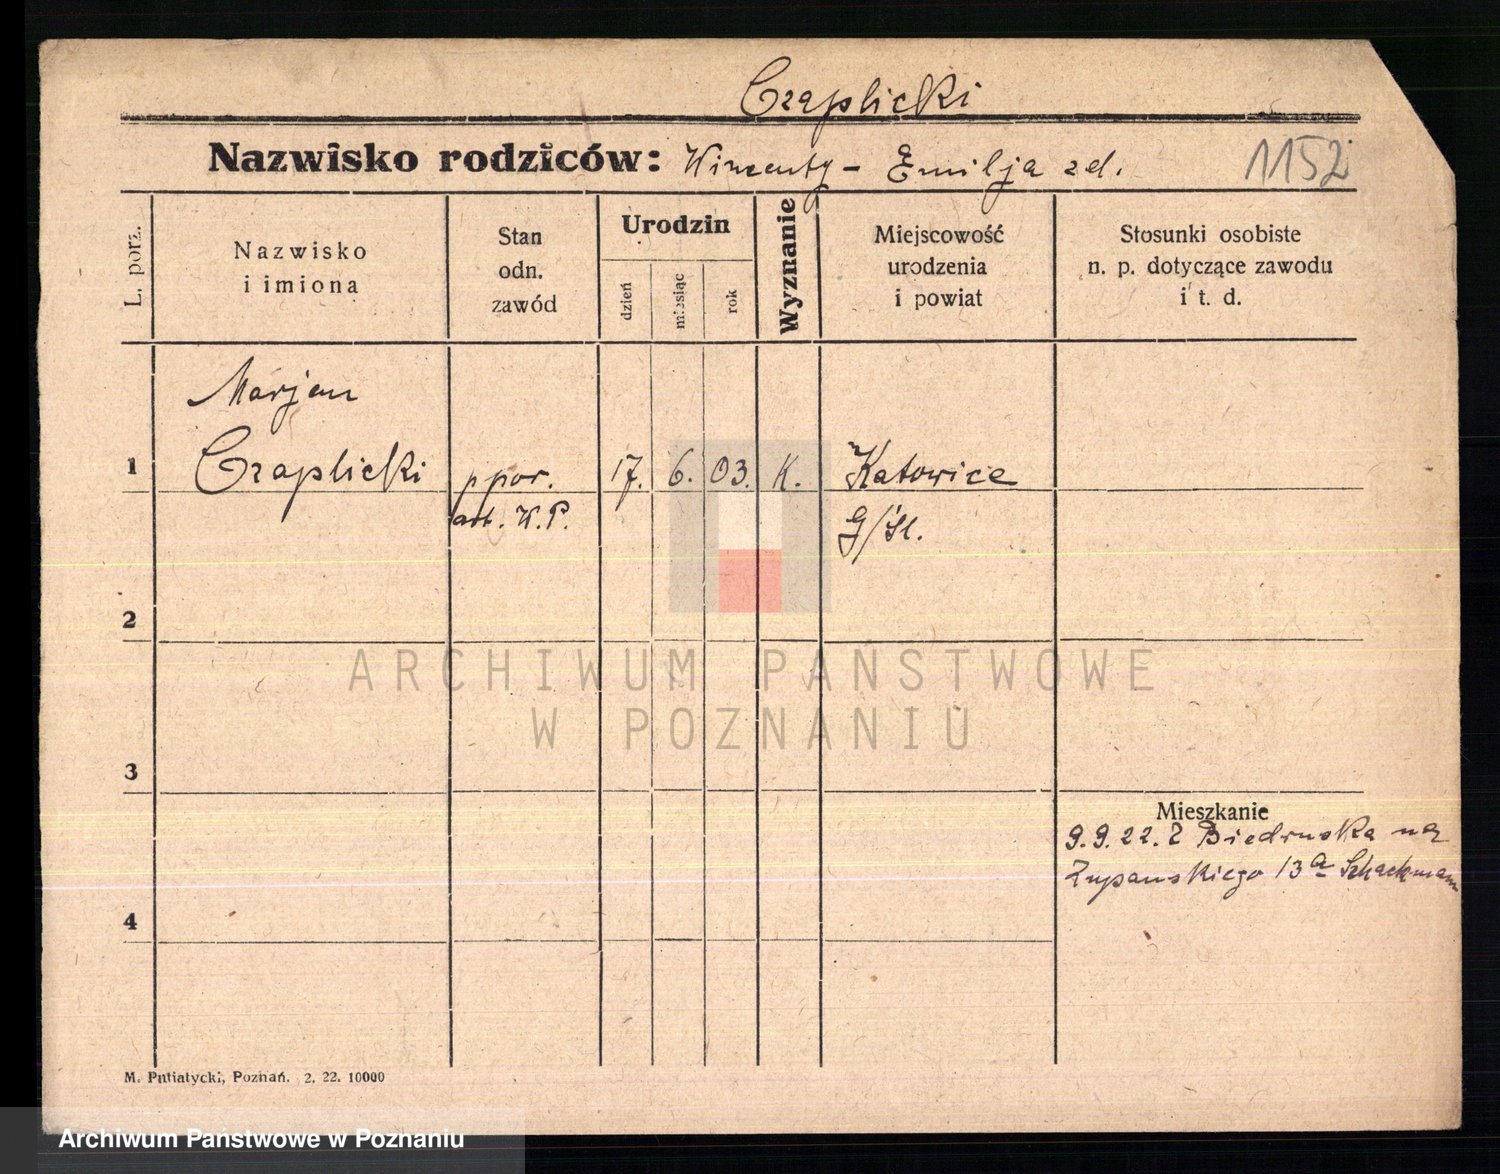 Czaplicki
Nazwisko rodziców: Wincenty - Emilja zd.
1152
L. porz.
Nazwisko
i imiona
Stan
odn.
zawód
Urodzin
dzień
miesiąc
rok
Wyznanie
Miejscowość
urodzenia
i powiat
Stosunki osobiste
n. p. dotyczące zawodu
i t. d.
Marjan
1 Czaplicki ppor. 17. 6. 03. K. Katowice
art. W.P. G/Śl.
2
ARCHIWUM PAŃSTWOWE
W POZNANIU
3
Mieszkanie
9.9.22. Z Biedruska na
Żupańskiego 13a
4
M. Putiatycki, Poznań. 2. 22. 10000
Archiwum Państwowe w Poznaniu